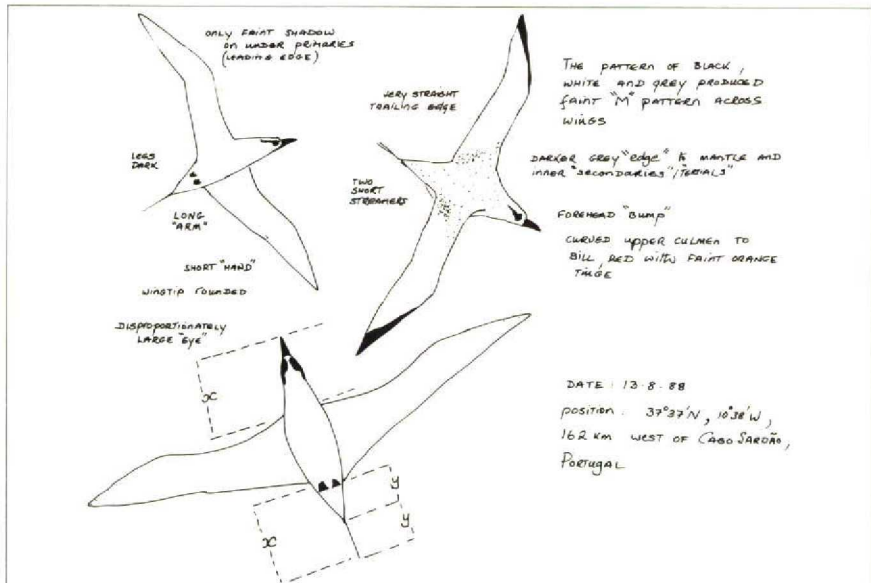 ONLY FAINT SHADOW
ON UNDER PRIMARIES
(LEADING EDGE)
LEGS
DARK
LONG
"ARM"
SHORT "HAND"
WINGTIP ROUNDED
DISPROPORTIONATELY
LARGE "EYE"
VERY STRAIGHT
TRAILING EDGE
TWO
SHORT
STREAMERS
THE PATTERN OF BLACK,
WHITE AND GREY PRODUCED
FAINT "M" PATTERN ACROSS
WINGS
DARKER GREY "EDGE" TO MANTLE AND
INNER "SECONDARIES"/TERIALS"
FOREHEAD "BUMP"
CURVED UPPER CULMEN TO
BILL, RED WITH FAINT ORANGE
TINGE
x
x
y
y
DATE : 13-8-88
POSITION : 37°37'N, 10°38'W,
162 KM WEST OF CABO SARDÃO,
PORTUGAL